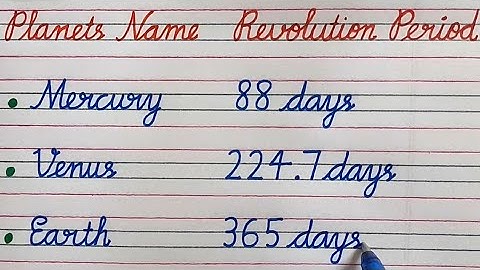 Planets Name Revolution Period
• Mercury 88 days
• Venus 224.7 days
• Earth 365 days